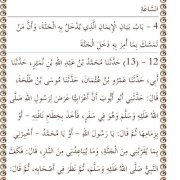 السَّاعَةِ
4 - بَابُ بَيَانِ الْإِيمَانِ الَّذِي يُدْخَلُ بِهِ الْجَنَّةَ، وَأَنَّ مَنْ
تَمَسَّكَ بِمَا أُمِرَ بِهِ دَخَلَ الْجَنَّةَ
12 - (13) حَدَّثَنَا مُحَمَّدُ بْنُ عَبْدِ اللَّهِ بْنِ نُمَيْرٍ، حَدَّثَنَا
أَبِي، حَدَّثَنَا عَمْرُو بْنُ عُثْمَانَ، حَدَّثَنَا مُوسَى بْنُ طَلْحَةَ،
قَالَ: حَدَّثَنِي أَبُو أَيُّوبَ أَنَّ أَعْرَابِيًّا عَرَضَ لِرَسُولِ اللهِ صَلَّى
اللهُ عَلَيْهِ وَسَلَّمَ وَهُوَ فِي سَفَرٍ، فَأَخَذَ بِخِطَامِ نَاقَتِهِ - أَوْ
بِزِمَامِهَا ثُمَّ قَالَ: يَا رَسُولَ اللهِ - أَوْ يَا مُحَمَّدُ - أَخْبِرْنِي
بِمَا يُقَرِّبُنِي مِنَ الْجَنَّةِ، وَمَا يُبَاعِدُنِي مِنَ النَّارِ، قَالَ: فَكَفَّ
النَّبِيُّ صَلَّى اللهُ عَلَيْهِ وَسَلَّمَ، ثُمَّ نَظَرَ فِي أَصْحَابِهِ، ثُمَّ قَالَ: